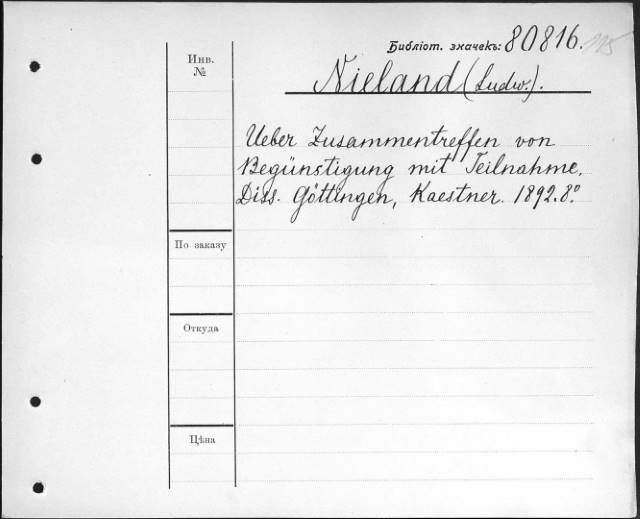 Библіот. значекъ: 80816.
Инв.
№
Nieland (Ludw.).
Ueber Zusammentreffen von
Begünstigung mit Teilnahme.
Diss. Göttingen, Kaestner. 1892. 8º
По заказу
Откуда
Цѣна